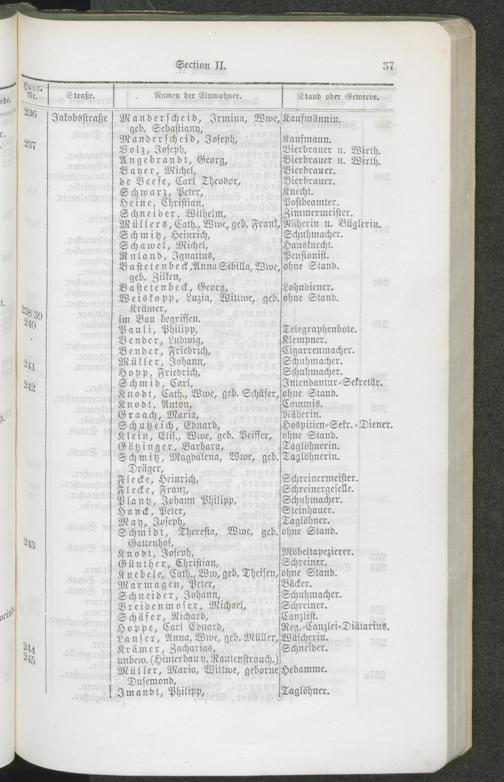 Section II. 37
Haus-Nr. Straße. Namen der Einwohner. Stand oder Gewerbe.
236 Jakobsstraße Manderscheid, Irmina, Wwe, Kaufmännin.
geb. Sebastiany,
Manderscheid, Joseph, Kaufmann.
237 Volz, Joseph, Bierbrauer u. Wirth.
Angebrandt, Georg, Bierbrauer u. Wirth.
Bayer, Michel, Bierbrauer.
de Beese, Carl Theodor, Bierbrauer.
Schwarz, Peter, Knecht.
Heine, Christian, Postbeamter.
Schneider, Wilhelm, Zimmermeister.
Müllers, Cath., Wwe, geb. Frank, Näherin u. Büglerin.
Schmitz, Heinrich, Schuhmacher.
Schawel, Michel, Hausknecht.
Ruland, Ignatius, Pensionist.
Bastetenbeck, Anna Sibilla, Wwe, ohne Stand.
geb. Zilken,
Bastetenbeck, Georg, Lohndiener.
Weiskopp, Luzia, Wittwe, geb. ohne Stand.
Krämer,
238/39 im Bau begriffen.
240 Pauli, Philipp, Telegraphenbote.
Bender, Ludwig, Klempner.
Bender, Friedrich, Cigarrenmacher.
Müller, Johann, Schuhmacher.
241 Hopp, Friedrich, Schuhmacher.
Schmid, Carl, Intendantur-Sekretär.
242 Knodt, Cath., Wwe, geb. Schäfer, ohne Stand.
Knodt, Anton, Commis.
Graach, Maria, Näherin.
Schutzeich, Eduard, Hospitien-Sekr.-Diener.
Klein, Elis., Wwe, geb. Peiffer, ohne Stand.
Götzinger, Barbara, Taglöhnerin.
Schmitz, Magdalena, Wwe, geb. Taglöhnerin.
Dräger,
Flecke, Heinrich, Schreinermeister.
Flecke, Franz, Schreinergeselle.
Plantz, Johann Philipp, Schuhmacher.
Hanck, Peter, Steinhauer.
May, Joseph, Taglöhner.
Schmidt, Theresia, Wwe, geb. ohne Stand.
Gattenhof,
243 Knodt, Joseph, Möbeltapezierer.
Günther, Christian, Schreiner.
Knebele, Cath., Ww, geb. Theisen, ohne Stand.
Marmagen, Peter, Bäcker.
Schneider, Johann, Schuhmacher.
Breidenmoser, Michael, Schreiner.
Schäfer, Richard, Canzlist.
Hoppe, Carl Eduard, Reg.-Canzlei-Diätarius.
Lanser, Anna, Wwe, geb. Müller, Wäscherin.
244 Krämer, Zacharias, Schneider.
245 unbew. (Hinterbau v. Rautenstrauch.)
Müller, Maria, Wittwe, geborne Hebamme.
Dusemond,
Imandt, Philipp, Taglöhner.